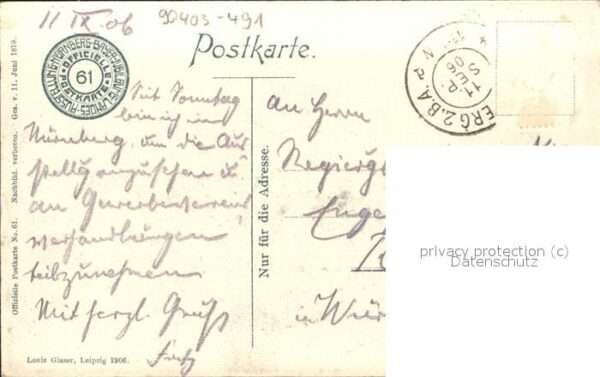 11 IX. 06
90403-491
Postkarte.
NÜRNBERG · BAYER. JUBILÄUMS-LANDES-AUSSTELLUNG
OFFICIELLE POSTKARTE
61
Seit Sonntag
bin ich in
Nürnberg, um die Aus-
stellg anzusehen u.
an Gewerbeverein
verhandlungen
teilzunehmen
Mit herzl. Gruß
Fritz
An Herrn
Regiergs
Euge
in Wür
Nur für die Adresse.
Officielle Postkarte No. 61. Nachbild. verboten. Ges. v. 11. Juni 1870.
Louis Glaser, Leipzig 1906.
ERG 2. B.A.P
11
privacy protection (c)
Datenschutz